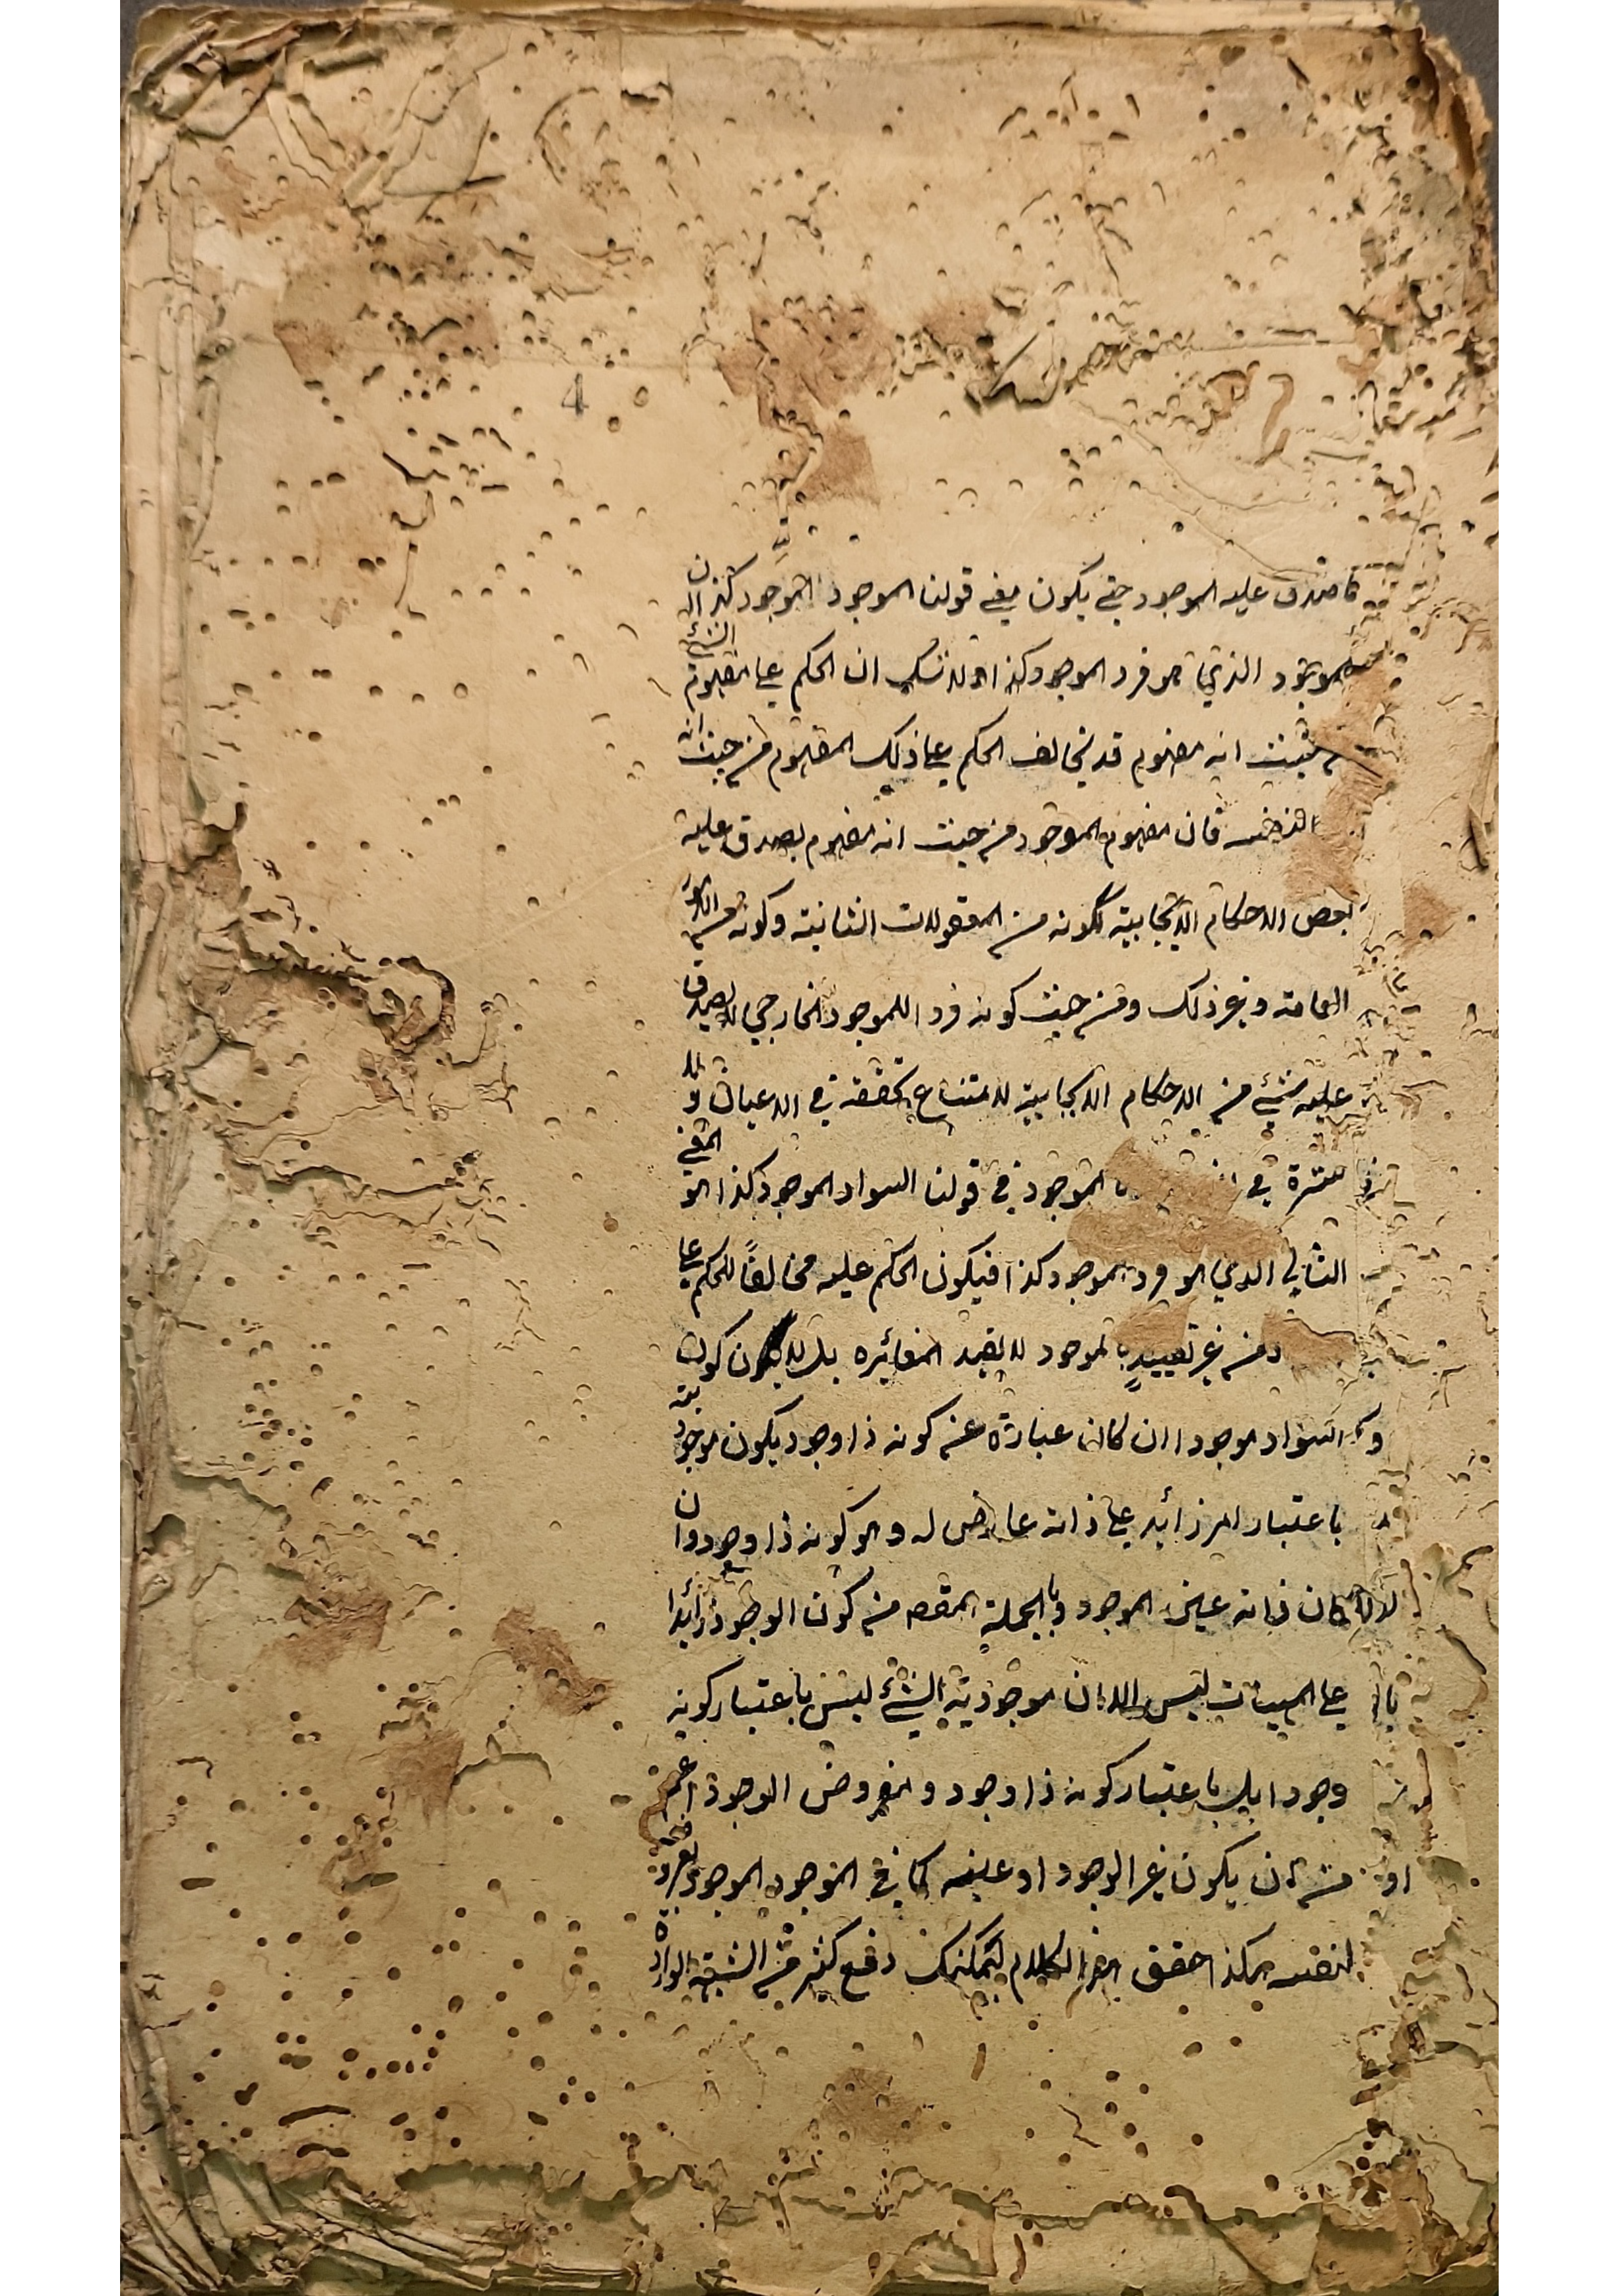 4
ما صدق عليه الموجود حتى يكون معنى قولنا الموجود الموجود كذا ان
الموجود الذي هو فرد الموجود كذا ولا شك ان الحكم على مفهوم الشئ
من حيث انه مفهوم قد يخالف الحكم على ذلك المفهوم من حيث انه
فان مفهوم الموجود من حيث انه مفهوم يصدق عليه
بعض الاحكام الايجابية لكونه من المعقولات الثانية وكونه من الامور
العامة وغير ذلك ومن حيث كونه فردا للموجود الخارجي لا يصدق
عليه شئ من الاحكام الايجابية لامتناع تحققه في الاعيان
في الموجود في قولنا السواد الموجود كذا هو المعنى
الثاني الذي هو فرد الموجود كذا فيكون الحكم عليه مخالفًا للحكم على
من غير تقييد بالموجود لا يفيد المغائره بل لا يكون كون
السواد موجودا ان كان عبارة عن كونه ذا وجود يكون موجوديته
باعتبار امر زائد على ذاته عارض له وهو كونه ذا وجود وان
كان ذاته عين الموجود وبالجملة المقصد من كون الوجود زائدا
على المهيات ليس الا ان موجودية الشئ ليس باعتبار كونه
وجودا بل باعتبار كونه ذا وجود ومعروض الوجود اعم
من ان يكون غير الوجود او عينه كما في الموجود الموجود
لنفسه هكذا حقق هذا الكلام ليمكنك دفع كثير من الشبه الواردة